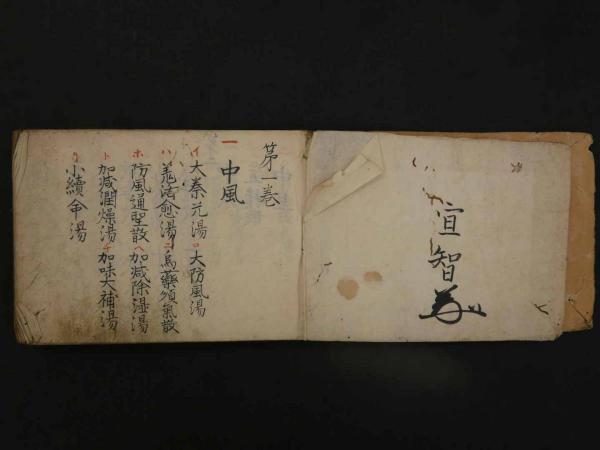 宣智
第一巻
一
中風
イ 大秦艽湯 ロ 大防風湯
ハ 羗活愈湯 ニ 烏藥順氣散
ホ 防風通聖散 ヘ 加減除湿湯
ト 加減潤燥湯 チ 加味大補湯
リ 小續命湯